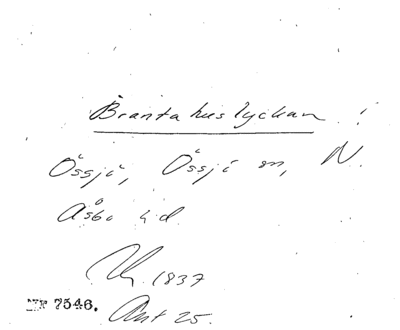 Brantahuslyckan !
Össjö, Össjö sn, N.
Åsbo hd.
1837
7546. Ant 25.